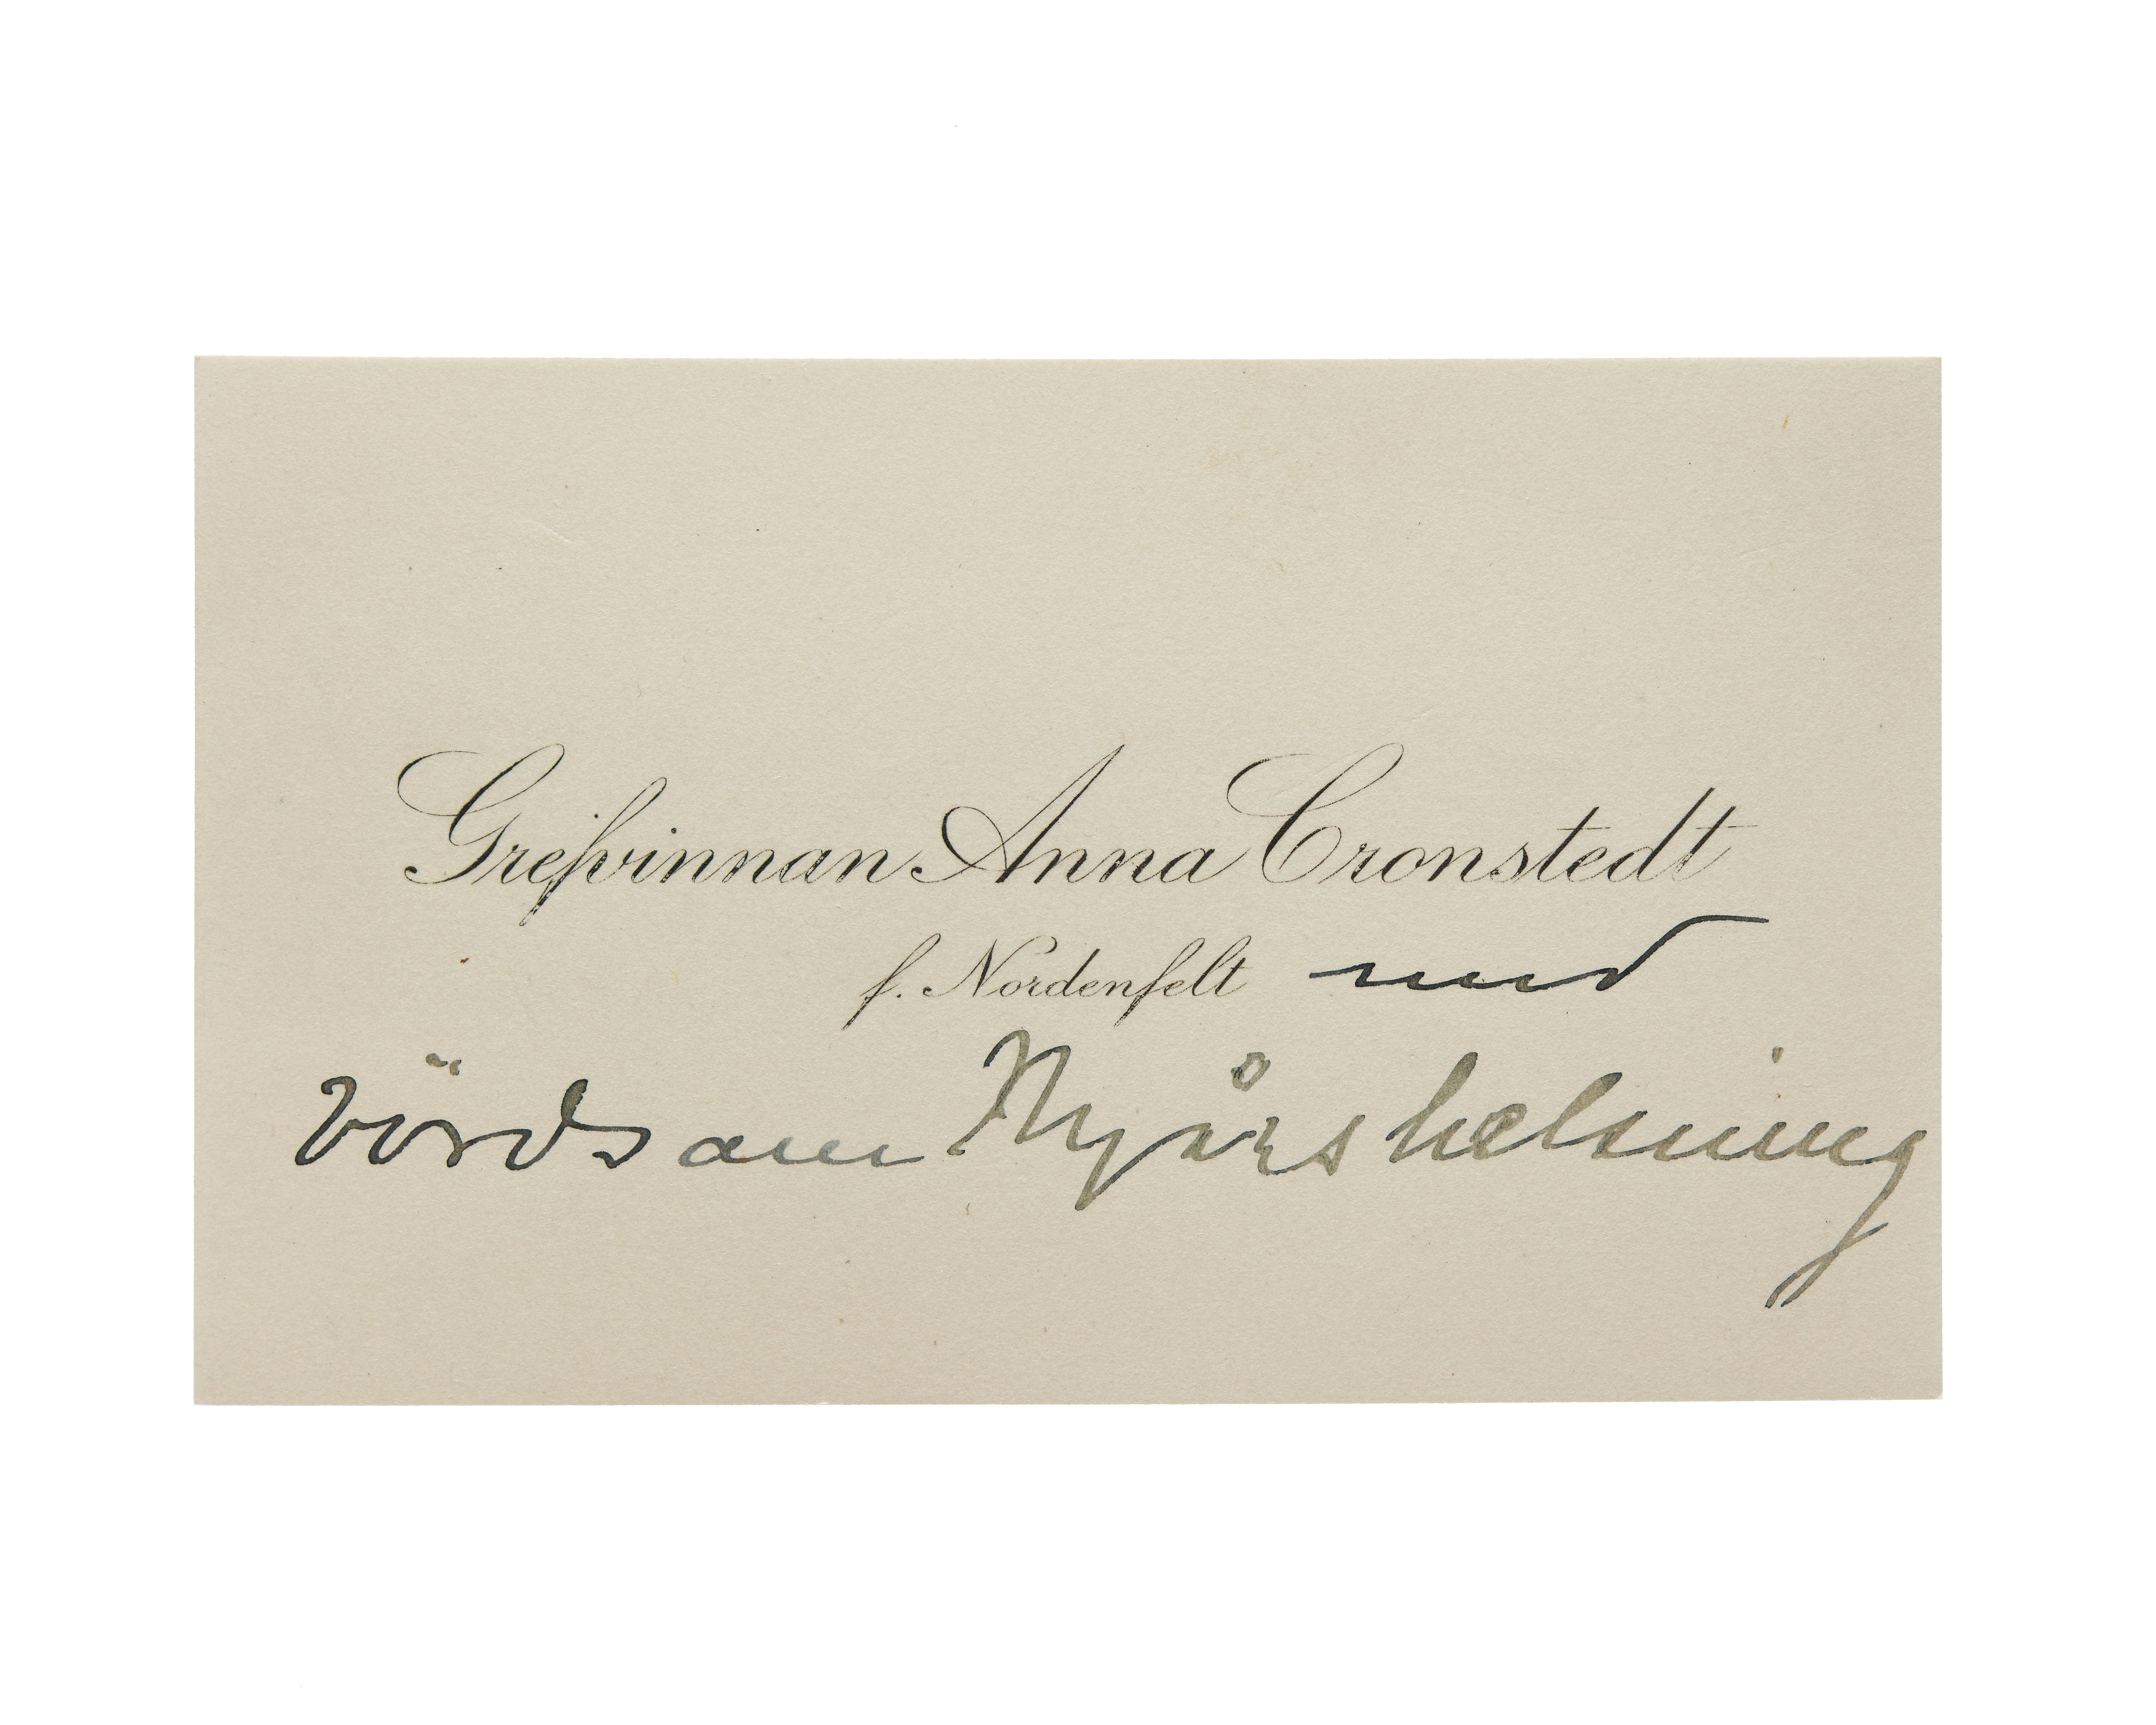 Grefvinnan Anna Cronstedt
f. Nordenfelt med
vördsam Nyårshelsning